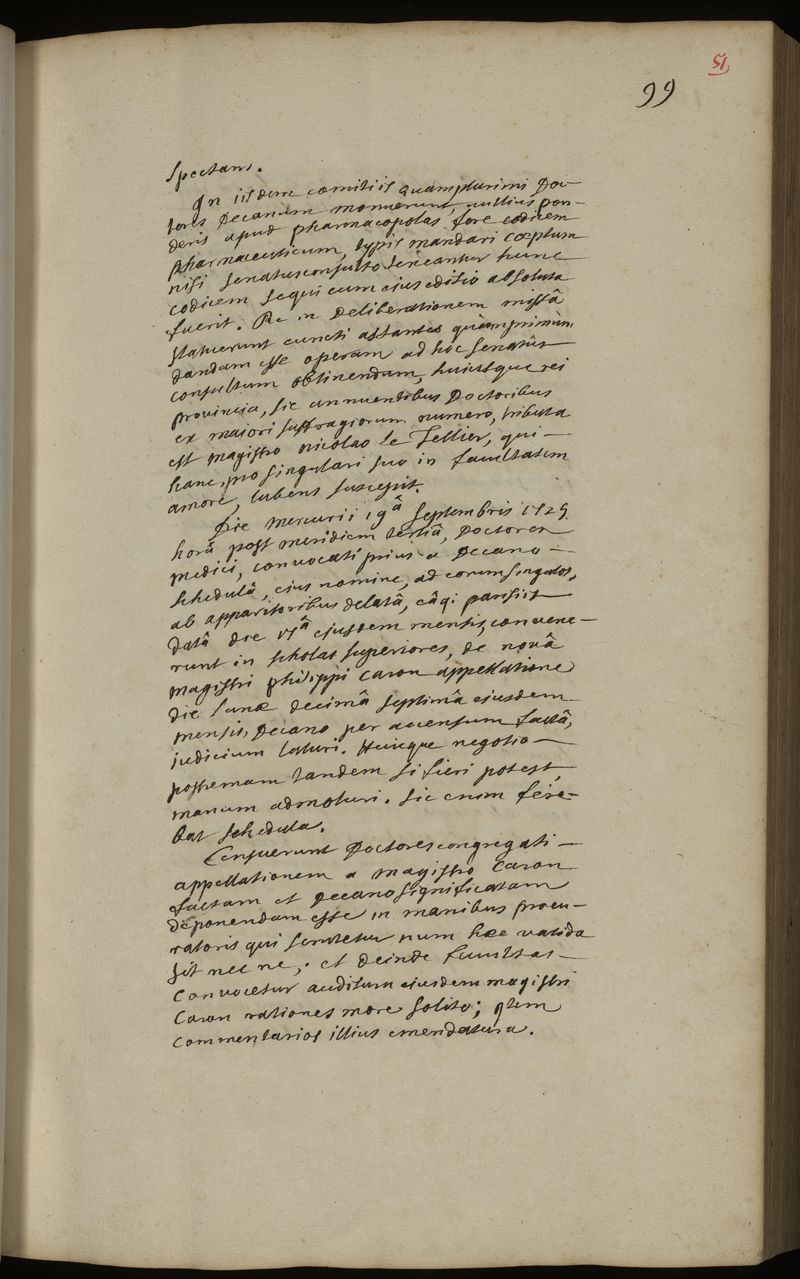 51
99
spectans.
In iisdem comitiis quamplurimi Doc-
tores Decanum monuerunt, nullius pon-
deris apud pharmacopolas fore codicem
pharmaceuticum, typis mandari cœptum
nisi senatusconsulto teneantur hunc
codicem sequi cum ejus editio absoluta
fuerit. Re in deliberationem missâ
statuerunt cuncti astantes quàmprimùm
dandam esse operam ad hoc senatus-
consultum obtinendum, huiusque rei
provincia, sic annuentibus Doctoribus
ex maiori suffragiorum numero, tributa
est magistro nicolao le Tellier, qui
hanc, pro singulari suo in facultatem
amore, lubens suscepit.
Die mercurii 19â septembris 1729
horâ post meridiem tertiâ, Doctores
medici, convocati prius a Decano
schedulâ, ejus nomine, ad eorum singulos,
ab apparitoribus delatâ, eâqe parisiis
datâ die ejusdem mensis, convene-
runt in scholas superiores, de novâ
magistri philippi Caron appellatione
die lunæ decimâ septimâ ejusdem
mensis, Decano per accensum factâ,
judicium laturi. Huicque negotio
postremam tandem si fieri potest,
manum admoturi. sic enim fere-
bat schedula.
Censuerunt Doctores congregati
appellationem a magistro Caron
factam et Decano significatam
deponendam esse in manibus procu-
ratoris qui scrutetur num hæc valida
sit nec ne; et deinde facultas
convocetur auditura ejusdem magistri
Caron rationes more solito; item
commentarios illius emendatura.